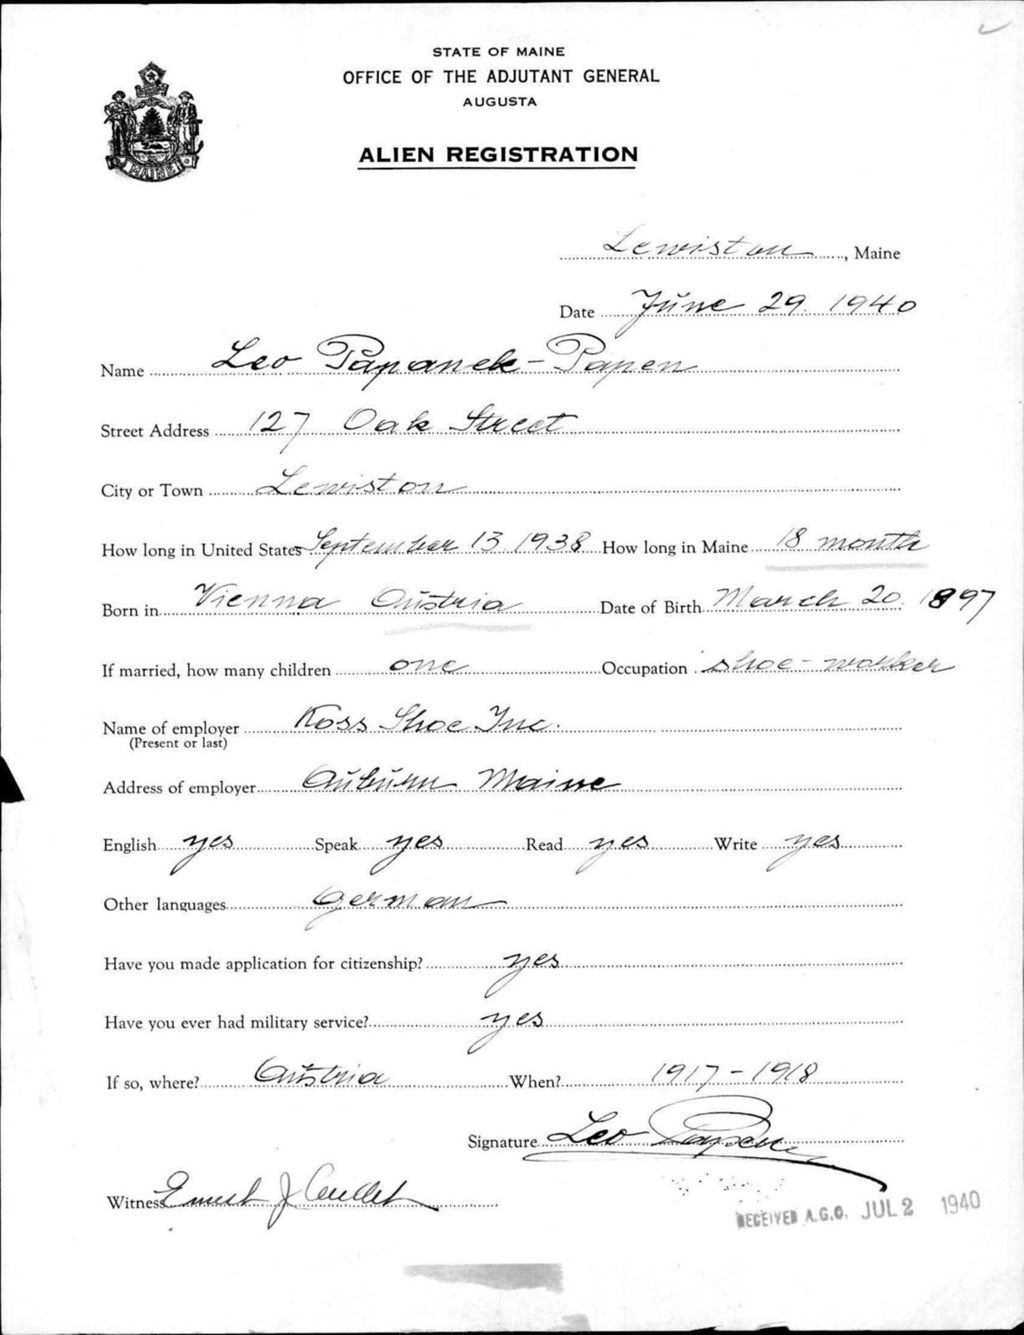 STATE OF MAINE
OFFICE OF THE ADJUTANT GENERAL
AUGUSTA
ALIEN REGISTRATION
MAINE
Lewiston, Maine
Date June 29. 1940
Name Leo Papanek-Papen
Street Address 127 Oak Street
City or Town Lewiston
How long in United States September 13 1938 How long in Maine 18 month
Born in Vienna Austria Date of Birth March 20. 1897
If married, how many children one Occupation shoe-worker
Name of employer Koss Shoe Inc.
(Present or last)
Address of employer Auburn Maine
English yes Speak yes Read yes Write yes
Other languages German
Have you made application for citizenship? yes
Have you ever had military service? yes
If so, where? Austria When? 1917-1918
Signature Leo Papen
Witness Ernest J Ouellet
RECEIVED A.G.O. JUL 2 1940